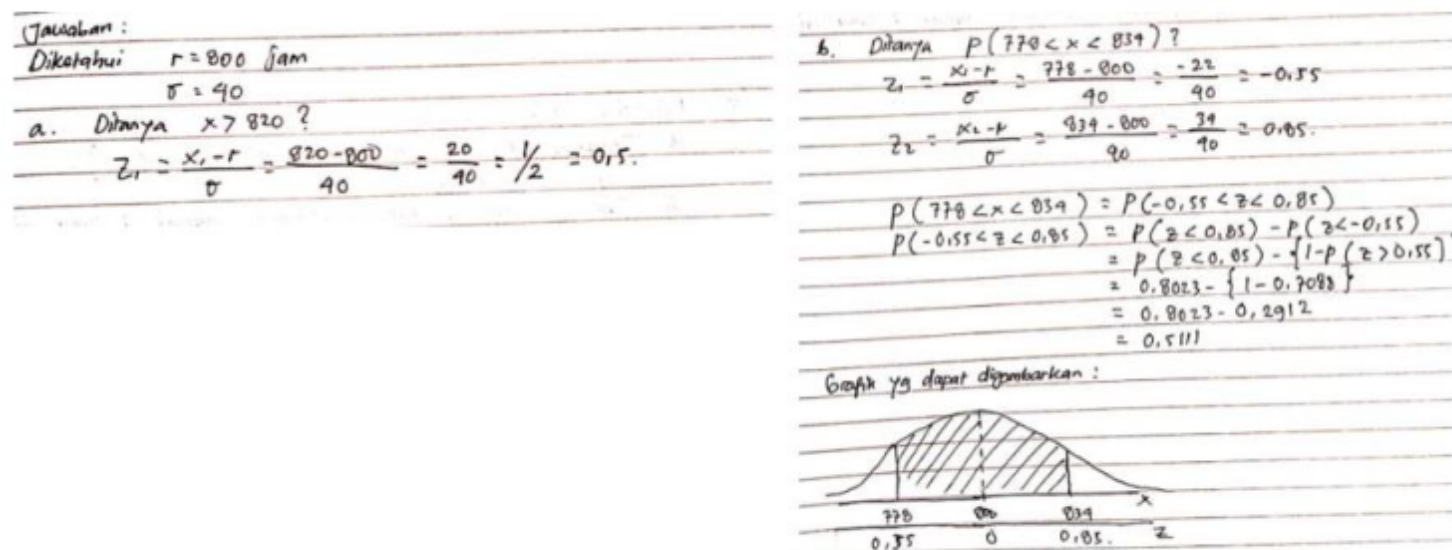 Jawaban :
Diketahui r = 800 jam
σ = 40
a. Ditanya x > 820 ?
Z₁ = x₁-r/σ = 820-800/40 = 20/40 = 1/2 = 0,5.
b. Ditanya P(778 < x < 834) ?
Z₁ = x₁-r/σ = 778-800/40 = -22/40 = -0,55
Z₂ = x₂-r/σ = 834-800/40 = 34/40 = 0,85.
P(778 < x < 834) = P(-0,55 < z < 0,85)
P(-0,55 < z < 0,85) = P(z < 0,85) - P(z < -0,55)
= P(z < 0,85) - {1-P(z > 0,55)
= 0.8023 - {1 - 0.7088}
= 0.8023 - 0,2912
= 0,5111
Grafik yg dapat digambarkan :
778 800 834 X
0,55 0 0,85. Z